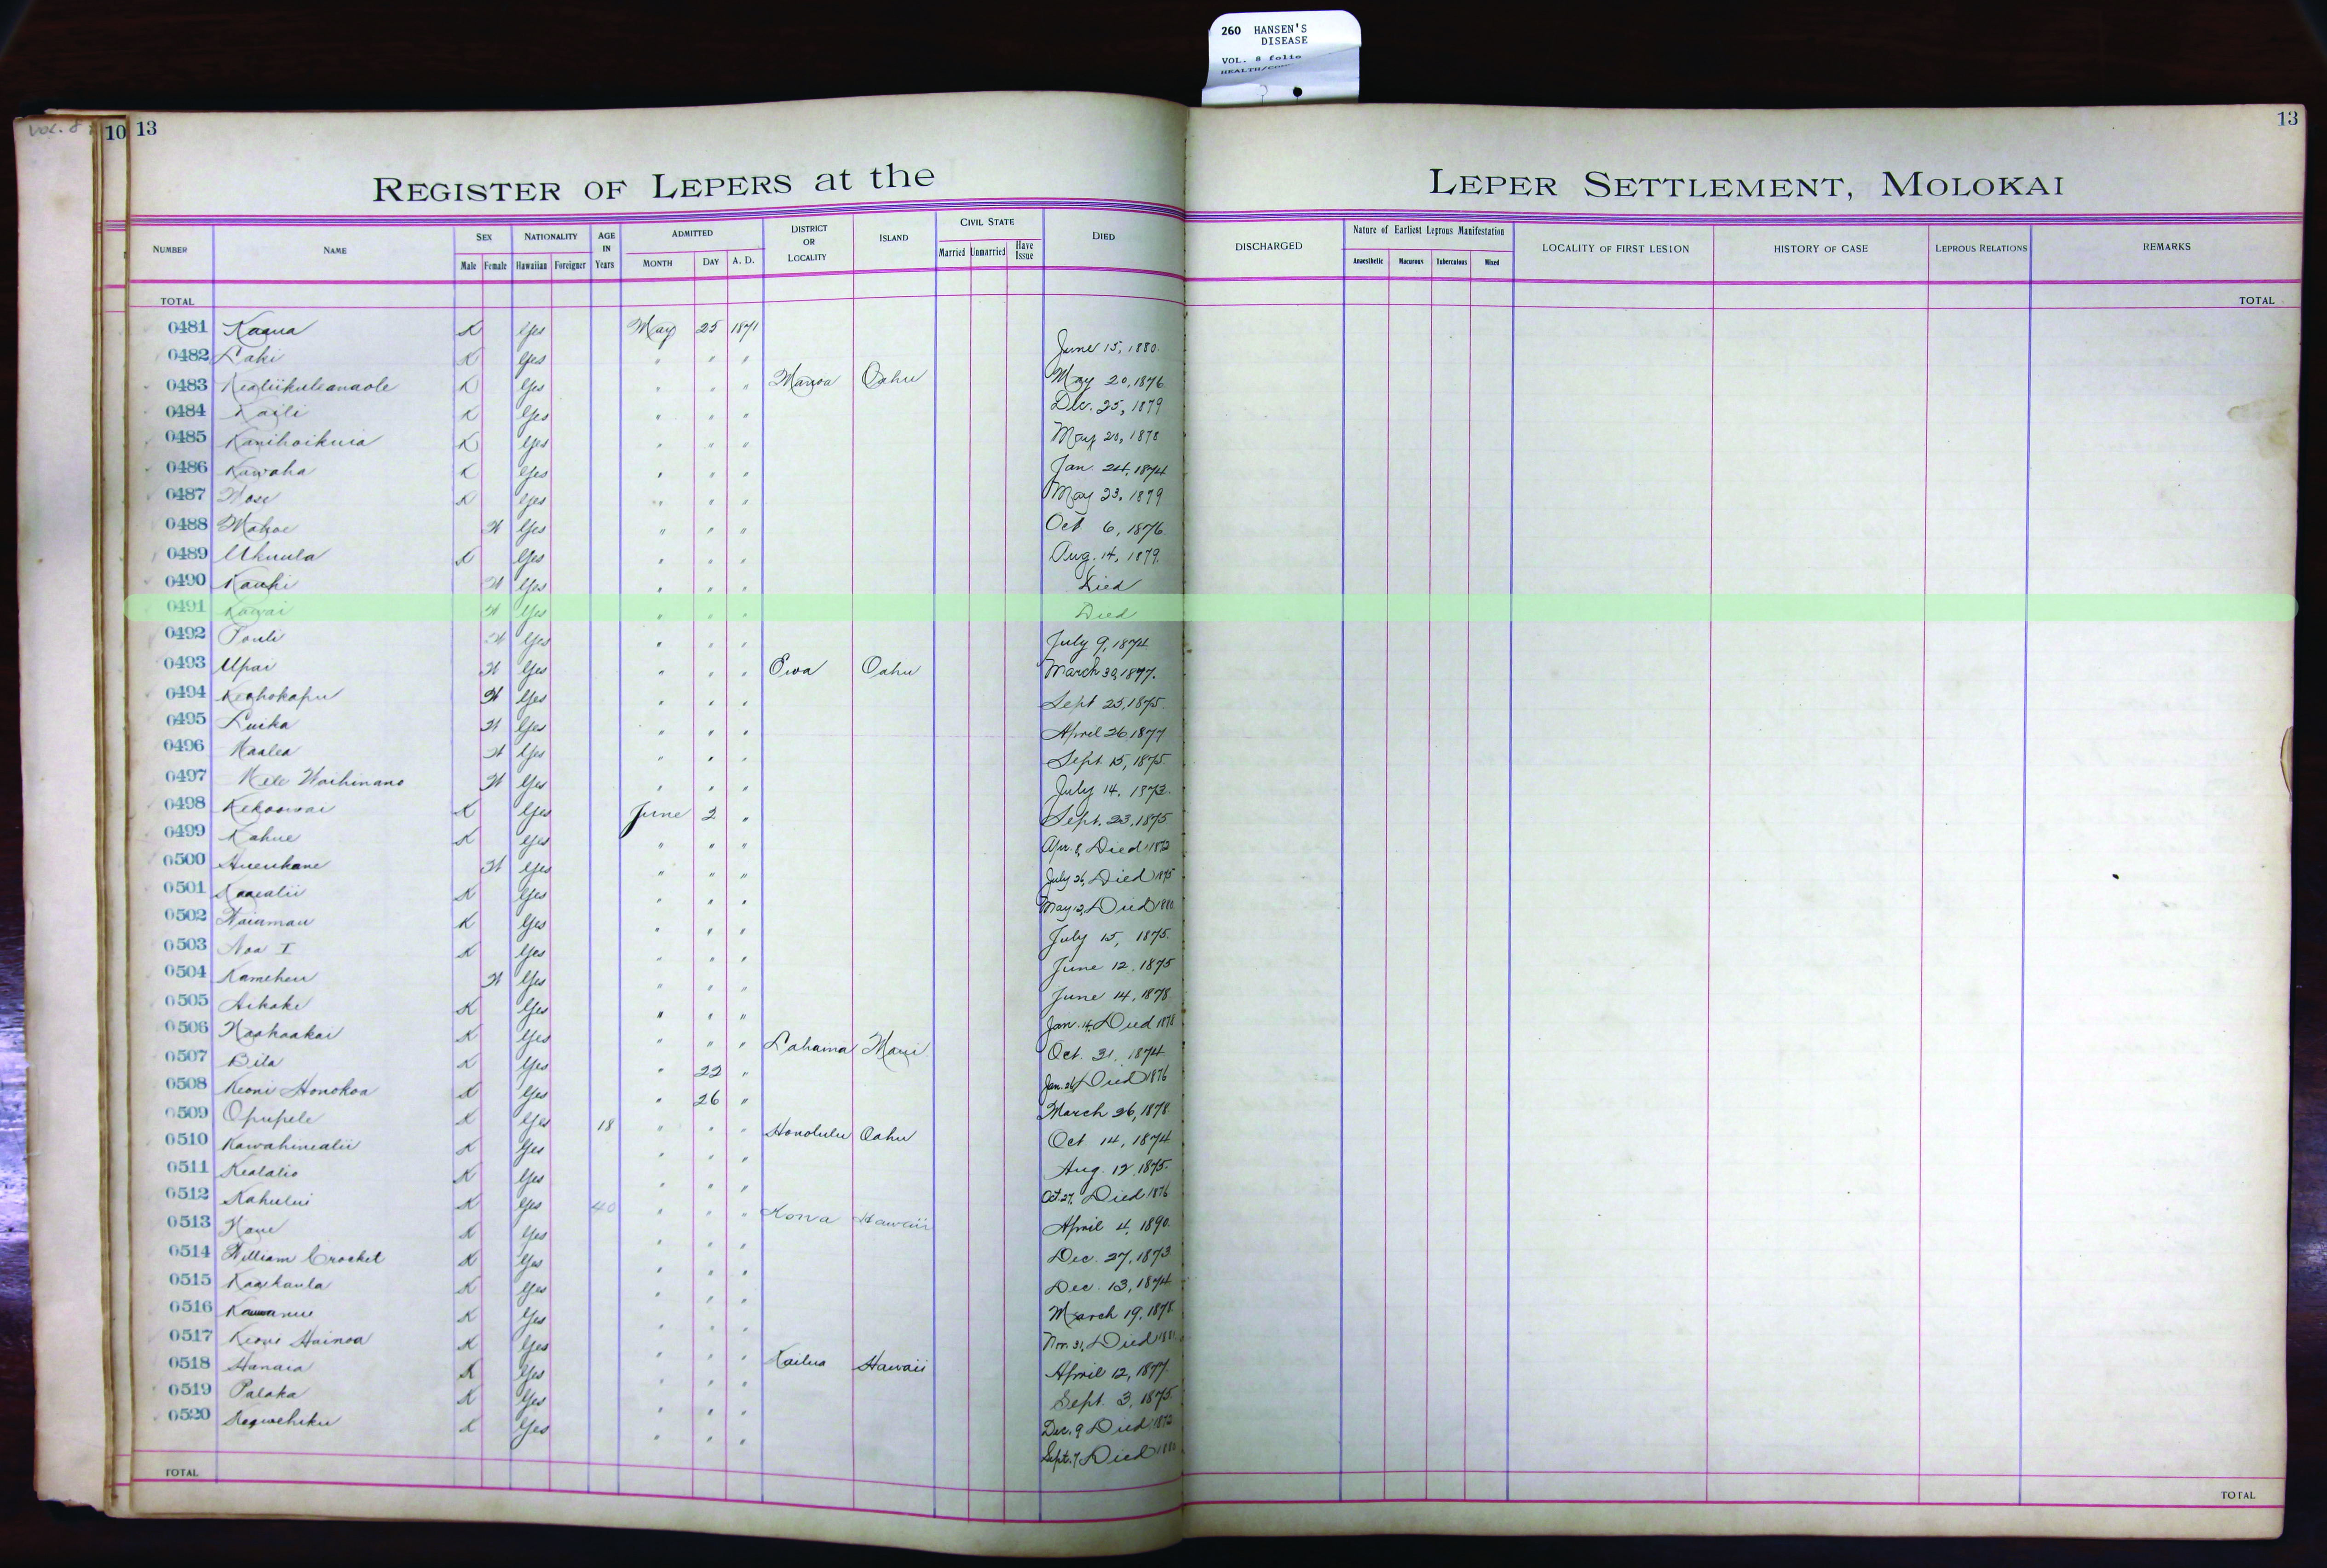 260 HANSEN'S
DISEASE
VOL. 8 folio
VOL. 8
10 13
13
REGISTER OF LEPERS at the LEPER SETTLEMENT, MOLOKAI
NUMBER NAME SEX Male Female NATIONALITY Hawaiian Foreigner AGE IN Years ADMITTED MONTH DAY A. D. DISTRICT OR LOCALITY ISLAND CIVIL STATE Married Unmarried Have Issue DIED DISCHARGED Nature of Earliest Leprous Manifestation Anaesthetic Macurous Tuberculous Mixed LOCALITY OF FIRST LESION HISTORY OF CASE LEPROUS RELATIONS REMARKS
TOTAL TOTAL
0481 Kaaua K Yes May 25 1871
0482 Laki K Yes " " " June 15, 1880.
0483 Kealiikuleanaole K Yes " " " Manoa Oahu May 20, 1876
0484 Kaili K Yes " " " Dec. 25, 1879
0485 Kanihoikuia K Yes " " " May 20, 1878
0486 Kawaha K Yes " " " Jan. 24, 1874
0487 K Yes " " " May 23, 1879
0488 Mahoe W Yes " " " Oct 6, 1876.
0489 Ukuula K Yes " " " Aug. 14, 1879.
0490 Kauhi W Yes " " " Died
0491 Kawai W Yes " " " Died
0492 Pouli W Yes " " " July 9, 1874
0493 Upai W Yes " " " Ewa Oahu March 30, 1877.
0494 Keohokapu W Yes " " " Sept 25, 1875.
0495 Luika W Yes " " " April 26 1877
0496 Maalea W Yes " " " Sept. 15, 1875.
0497 Mele Waihinano W Yes " " " July 14, 1873.
0498 Kekoowai K Yes June 2 " Sept. 23, 1875
0499 Kahue K Yes " " " Apr. 8, Died 1872
0500 Hueukane W Yes " " " July 26, Died 1875
0501 Kaaealii K Yes " " " May 12, Died 1880
0502 Waiamau K Yes " " " July 15, 1875.
0503 Noa I K Yes " " " June 12. 1875
0504 Kameheu W Yes " " " June 14, 1878
0505 Aikake K Yes " " " Jan. 14, Died 1878
0506 Naahaakai K Yes " " " Lahaina Maui. Oct. 31, 1874
0507 Bila K Yes " 22 " Jan. 26, Died 1876
0508 Keoni Honokoa K Yes " 26 " March 26, 1878
0509 Opupele K Yes 18 " " " Honolulu Oahu Oct 14, 1874
0510 Kawahinealii K Yes " " " Aug. 12. 1875.
0511 Kealalio K Yes " " " Oct. 27, Died 1876
0512 Kahului K Yes 40 " " " Kona Hawaii April 4, 1890.
0513 Kane K Yes " " " Dec. 27, 1873
0514 William Crocket K Yes " " " Dec. 13, 1874
0515 Kaaikaula K Yes " " " March 19, 1878
0516 K Yes " " " Nov. 31, Died
0517 Keoni Hainoa K Yes " " " Kailua Hawaii April 12, 1877.
0518 Hanaia K Yes " " " Sept. 3, 1875
0519 Palaka K Yes " " " Dec. 9 Died 1872
0520 K Yes " " " Sept. 7, Died
TOTAL TOTAL